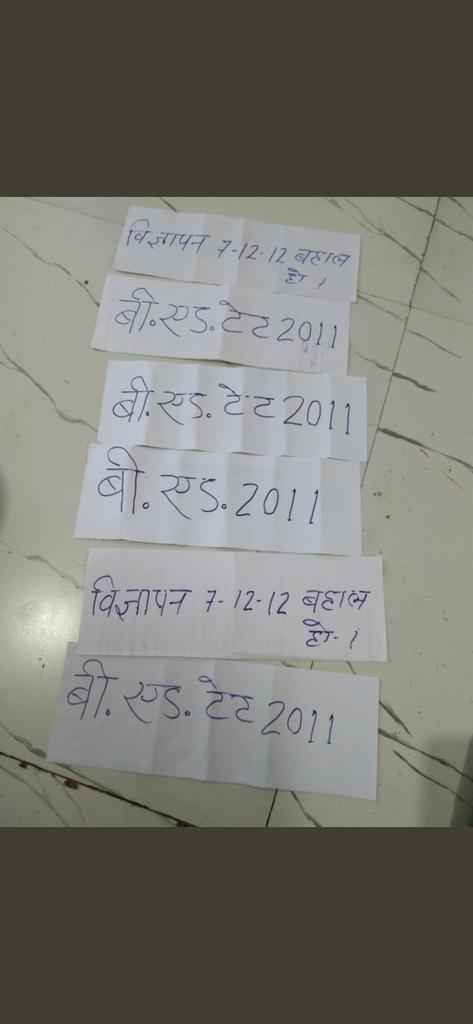 विज्ञापन 7-12-12 बहाल
हो।
बी.एड.टेट 2011
बी.एड.टेट 2011
बी.एड.2011
विज्ञापन 7-12-12 बहाल
हो-।
बी.एड.टेट 2011